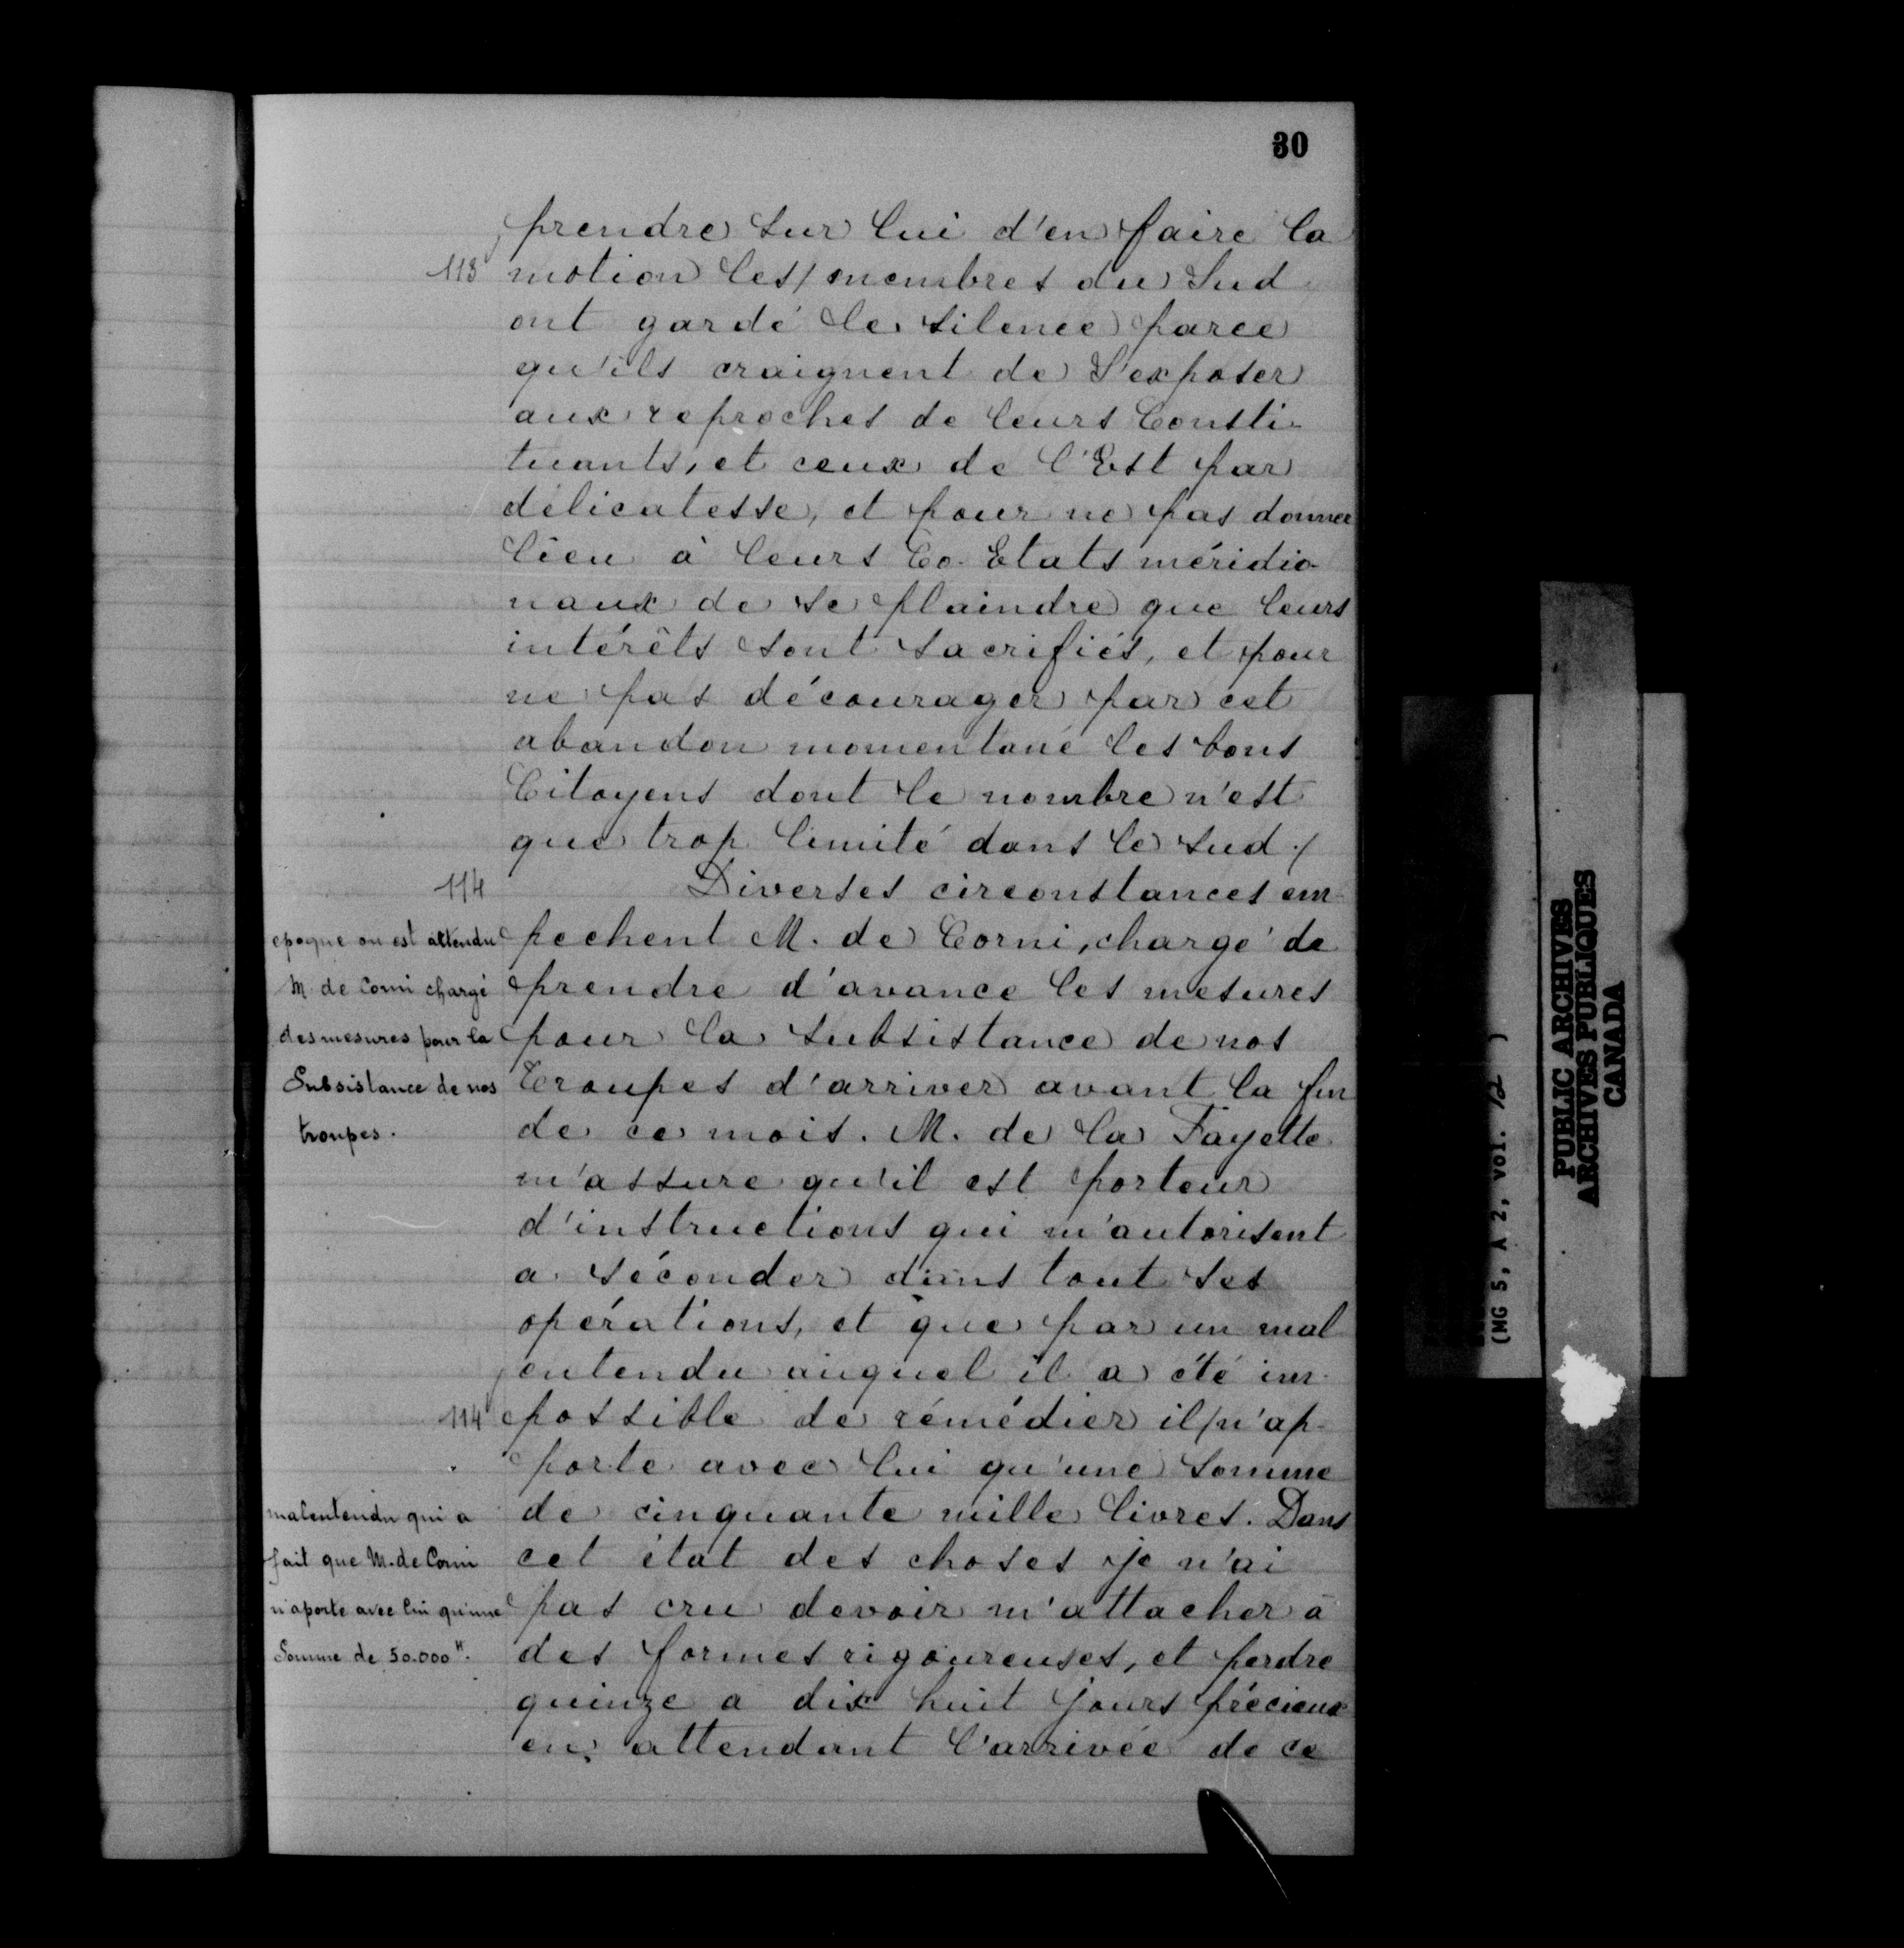 30
prendre sur lui d'en faire la
113 motion les/membres du Sud
ont gardé le silence parce
qu'ils craignent de s'exposer
aux reproches de leurs Consti-
tuants, et ceux de l'Est par
délicatesse, et pour ne pas donner
lieu à leurs Co-Etats méridio-
naux de se plaindre que leurs
intérêts sont sacrifiés, et pour
ne pas décourager par cet
abandon momentané les bons
Citoyens dont le nombre n'est
que trop limité dans le Sud./
114 Diverses circonstances em-
pechent M. de Corni, chargé de
prendre d'avance les mesures
pour la subsistance de nos
Troupes d'arriver avant la fin
de ce mois. M. de la Fayette
m'assure qu'il est porteur
d'instructions qui m'autorisent
a séconder dans tout ses
opérations, et que par un mal
entendu auquel il a été im-
114 possible de rémédier il/n'ap-
porte avec lui qu'une somme
de cinquante mille livres. Dans
cet état des choses je n'ai
pas cru devoir m'attacher à
des formes rigoureuses, et perdre
quinze a dix huit jours précieux
en attendant l'arrivée de ce
epoque ou est attendu
M. de Corni chargé
des mesures pour la
Subsistance de nos
troupes.
malentendu qui a
fait que M. de Corni
n'aporte avec lui qu'une
Somme de 50.000#.
(MG 5, A 2, vol. 12 )
PUBLIC ARCHIVES
ARCHIVES PUBLIQUES
CANADA